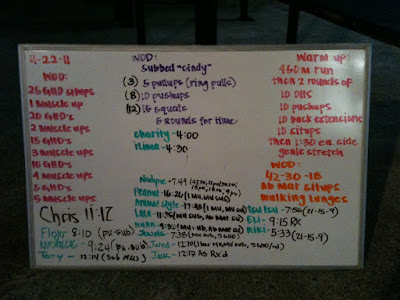 11-22-11
WOD:
25 GHD situps
1 Muscle up
20 GHD's
2 Muscle ups
15 GHD's
3 Muscle ups
10 GHD's
4 Muscle ups
5 GHD's
5 Muscle ups
Chris 11:12
Flojo 8:10 (pu-sub)
9:24 (pu.sub)
Terry - 12:14 (Sub MUs)
WOD:
Subbed "Cindy"
(3) 5 pullups (ring pulls)
(8) 10 pushups
(12) 15 squats
5 rounds for time
Charity - 4:00
ilima - 4:30
Nadyne - 7:49
Peanut - 16:26
Animal Style - 17:48
Lala - 11:25
Jewels 7:38
Jared - 12:10
Jack - 12:12 As Rx'd
Warm up:
450 m run
then 2 rounds of
10 OHS
10 pushups
10 back extensions
10 situps
then 1:30 ea. side
genie stretch
WOD:
42-30-18
Ab mat situps
walking lunges
7:56 (21-15-9)
Eli - 9:15 RX
Niki - 5:33 (21-15-9)